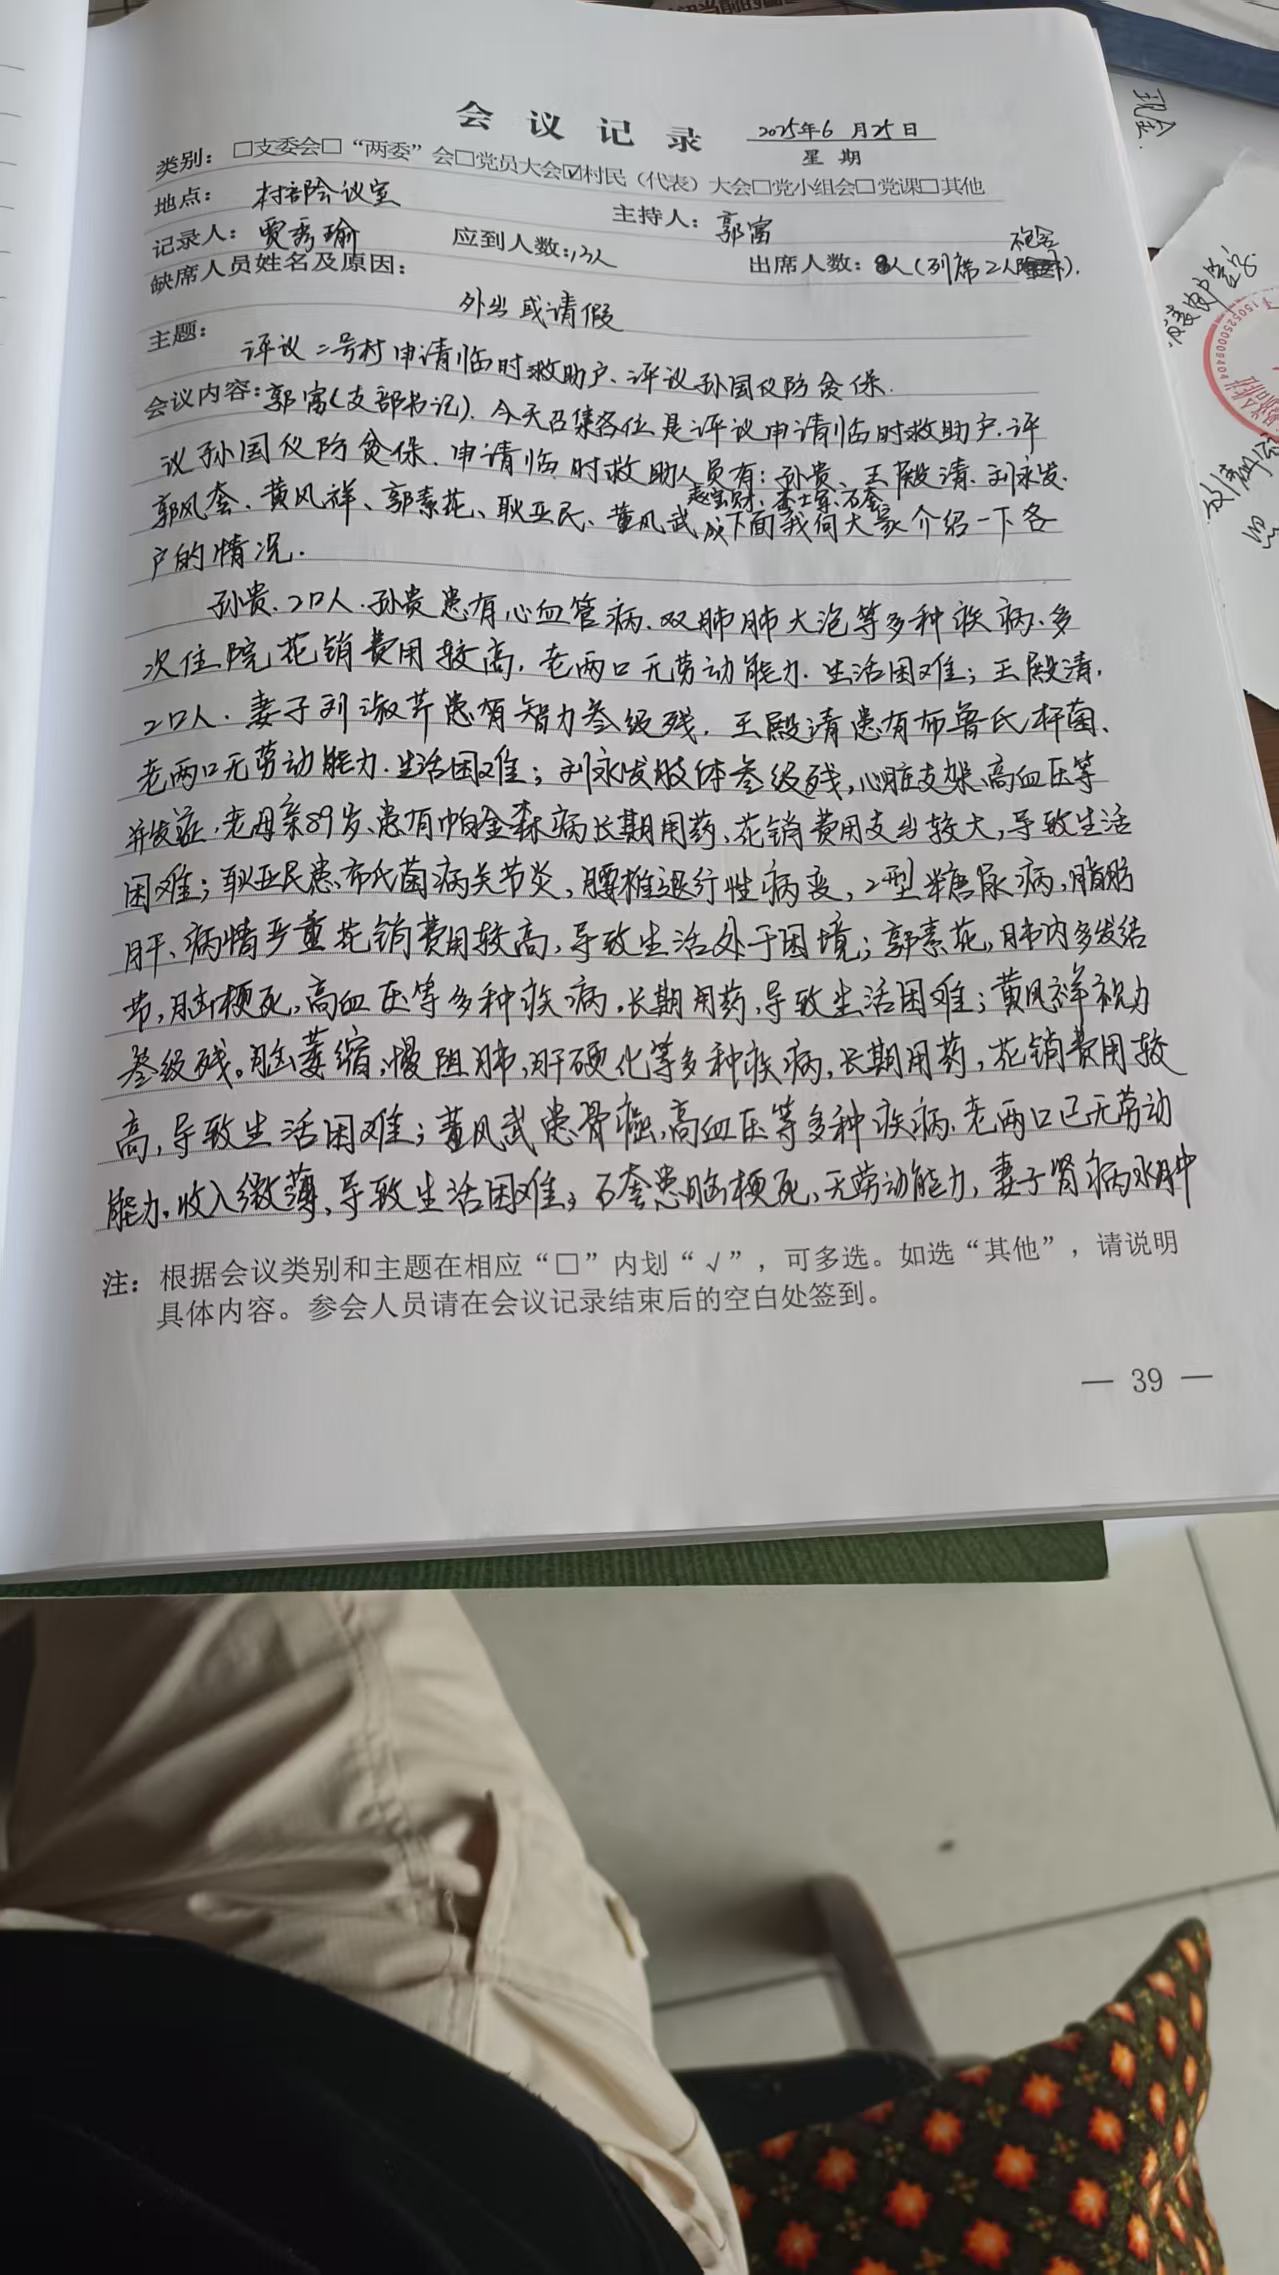 会议记录 2025年6月25日
星期
类别：□支委会□“两委”会□党员大会☑村民（代表）大会□党小组会□党课□其他
地点： 村部会议室 主持人：郭富
记录人：贾秀瑜 应到人数：13人 出席人数：8人(列席2人).
缺席人员姓名及原因：
外出或请假
主题： 评议二号村申请临时救助户、评议孙国仪防贫保.
会议内容：郭富(支部书记). 今天召集各位是评议申请临时救助户.评
议孙国仪防贫保. 申请临时救助人员有：孙贵、王殿清.刘永发.
赵宝财、李士军、石奎
郭风奎、黄风祥、郭素花、耿亚民、董风武 下面我向大家介绍一下各
户的情况.
孙贵.2口人.孙贵患有心血管病.双肺肺大泡等多种疾病.多
次住院花销费用较高.老两口无劳动能力.生活困难；王殿清.
2口人.妻子刘淑芹患有智力叁级残.王殿清患有布鲁氏杆菌、
老两口无劳动能力.生活困难；刘永发肢体叁级残，心脏支架、高血压等
并发症.老母亲89岁、患有帕金森病长期用药、花销费用支出较大，导致生活
困难；耿亚民患布氏菌病关节炎，腰椎退行性病变，2型糖尿病，脂肪
肝、病情严重花销费用较高，导致生活处于困境；郭素花，肺内多发结
节，脑梗死，高血压等多种疾病.长期用药，导致生活困难；黄风祥视力
叁级残。脑萎缩，慢阻肺，肝硬化等多种疾病，长期用药，花销费用较
高，导致生活困难；董风武患骨癌，高血压等多种疾病、老两口已无劳动
能力，收入微薄，导致生活困难；石奎患脑梗死，无劳动能力，妻子肾病水肿
注：根据会议类别和主题在相应“□”内划“√”，可多选。如选“其他”，请说明
具体内容。参会人员请在会议记录结束后的空白处签到。
— 39 —
现金
1505250008404